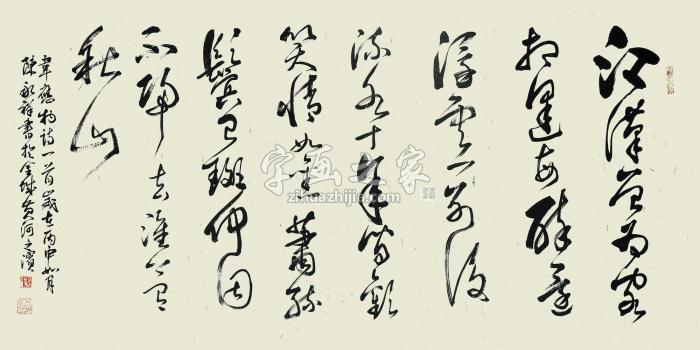 江漢曾為客
相逢每醉還
浮雲一別後
流水十年間歡
笑情如舊蕭疏
鬢已斑何因
不歸去淮上有
秋山
韋應物詩一首歲在丙申如月
陳永祥書於金城黃河之濱
字画之家
zihuazhijia.com